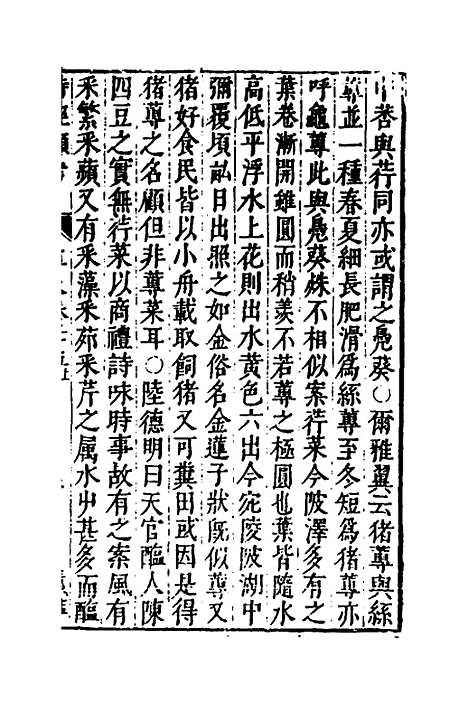 屮莕與荇同亦或謂之鳧葵○爾雅翼云猪蓴與絲
蓴並一種春夏細長肥滑爲絲蓴至冬短爲猪蓴亦
呼龜蓴此與鳧葵姝不相似案荇菜今陂澤多有之
葉卷漸開雖圓而稍羡不若蓴之極圓也葉皆隨水
高低平浮水上花則出水黄色六出今宛陵陂湖中
彌覆頃畝日出照之如金俗名金蓮子狀旣似蓴又
猪好食民皆以小舟載取飼猪又可糞田或因是得
猪蓴之名顧但非蓴菜耳○陸德明曰天官醢人陳
四豆之實無荇菜以商禮詩咏時事故有之案風有
釆繁釆蘋又有釆藻釆茆釆芹之属水屮甚多而醢